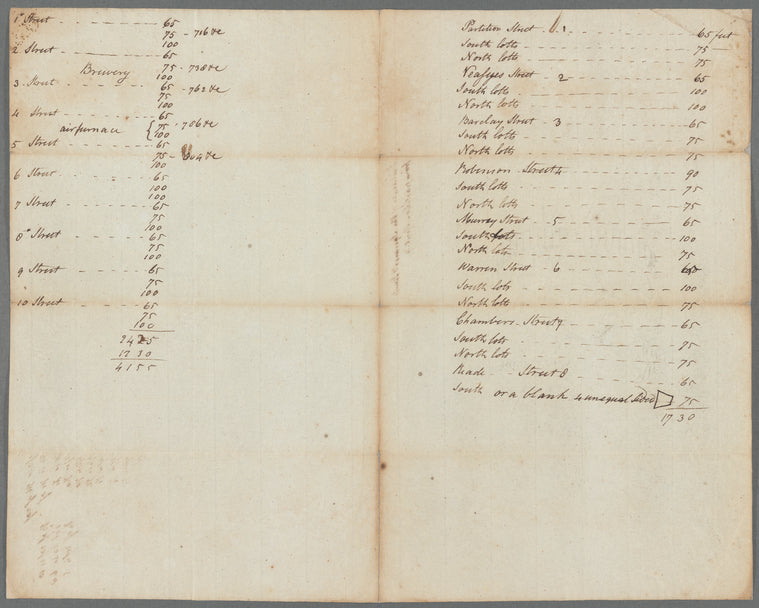 1st Street 65
75 - 716 &c
100
2 Street 65
Brewery 75 - 738 &c
100
3 Street 65 - 762 &c
75
100
4 Street 65
airfurnace { 75 - 786 &c
100
5 Street 65
75 - 804 &c
100
6 Street 65
100
100
7 Street 65
75
100
8th Street 65
75
100
9 Street 65
75
100
10 Street 65
75
100
2425
1730
4155
Partition Street 1 65 feet
South lotts 75
North lotts 75
Veaseyes Street 2 65
South lotts 100
North lotts 100
Barclay Street 3 65
South lotts 75
North lotts 75
Robinson Street 4 90
South lots 75
North lots 75
Murray Street 5 65
South lots 100
North lots 75
Warren Street 6 65
South lots 100
North lots 75
Chambers Street 7 65
South lots 75
North lots 75
Reade Street 8 65
South or a blank 4 unequal sided 75
1730